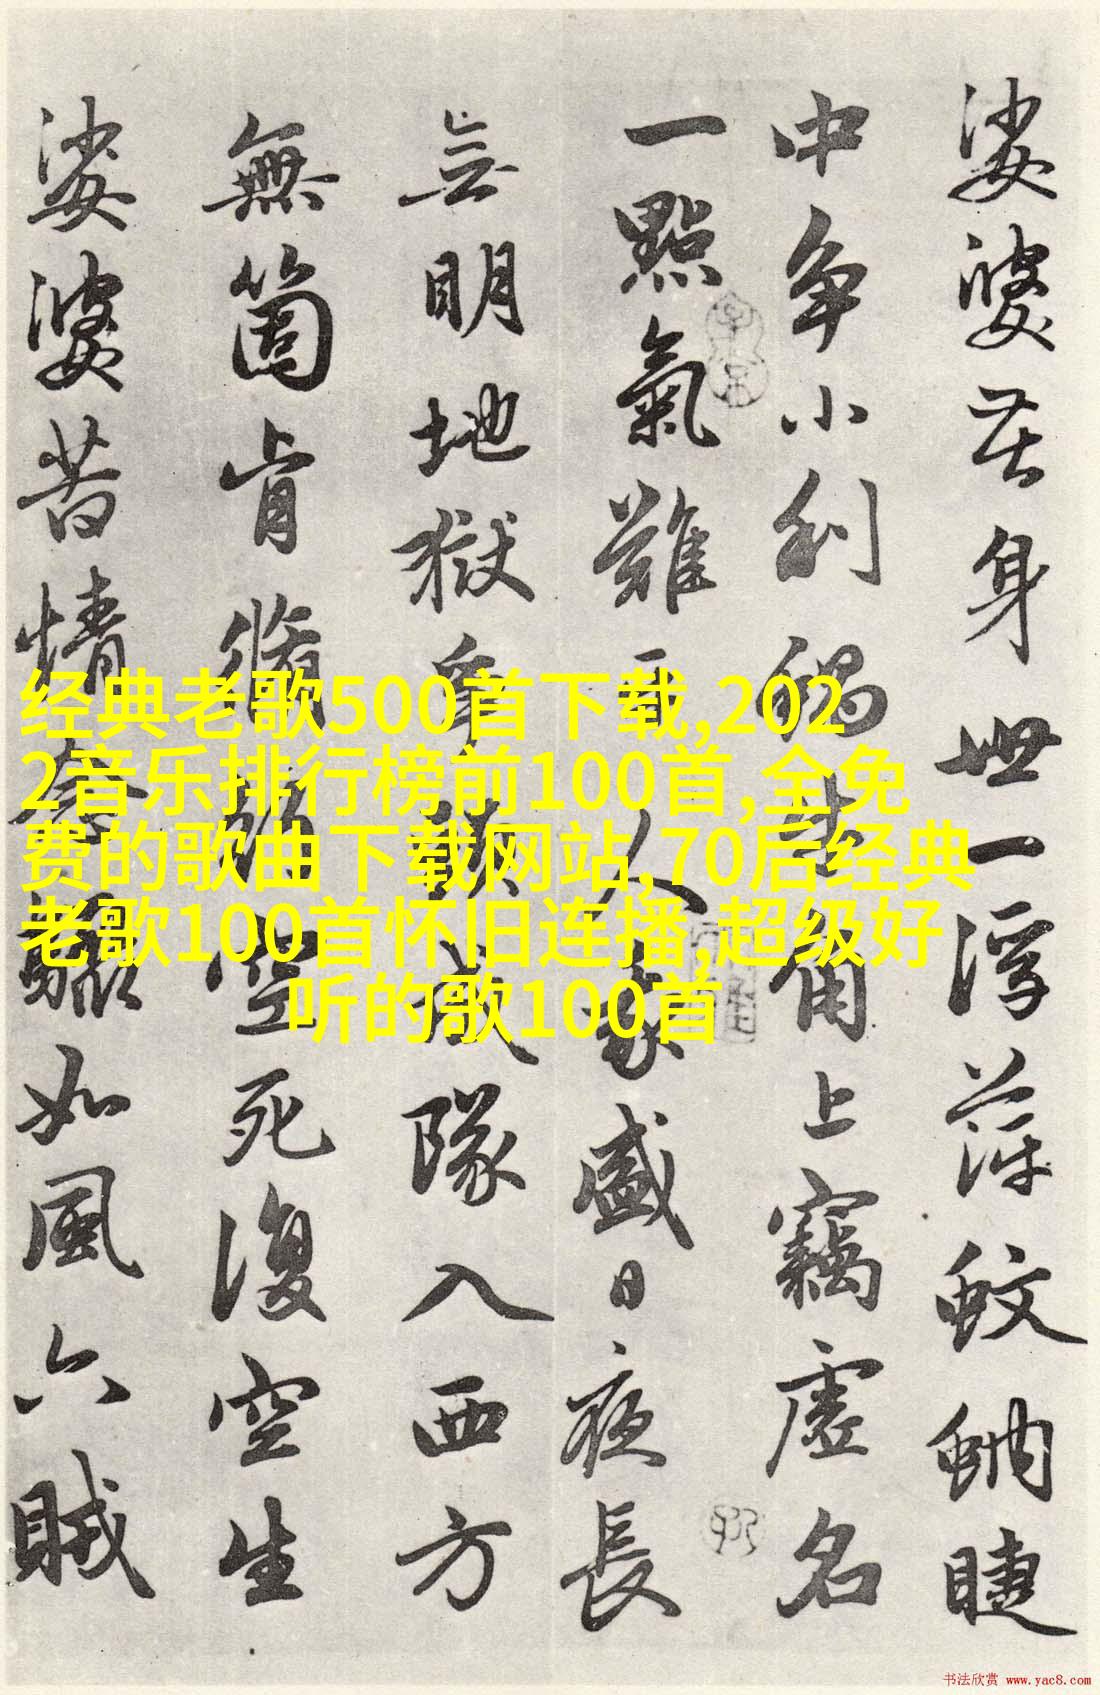 娑婆苦身世一浮萍蚊蚋睫
中争小利蝸牛角上竊虚名
一點氣難人我盛日夜長
无明地獄爭成隊入西方
無箇肯脩空死復空生
娑婆苦情驟如風六賊
经典老歌500首下载,202
2音乐排行榜前100首,全免
费的歌曲下载网站,70后经典
老歌100首怀旧连播,超级好
听的歌100首
书法欣赏 www.yac8.com